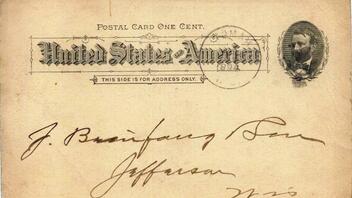 POSTAL CARD ONE CENT.
United States of America
THIS SIDE IS FOR ADDRESS ONLY.
J.
Jefferson
Wis